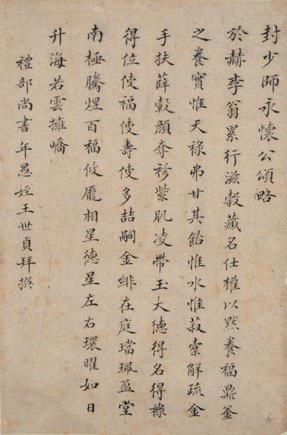 封少師永懷公頌略
於赫李翁累行滋穀藏名仕權以默養福鼎釜
之養實惟天祿弗甘其飴惟水惟菽棄解疏金
手扶薜轂顏奪袗紫肌凌帶玉大德得名得祿
得位使福使壽使多喆嗣金緋在庭璫珮盈堂
南極騰煌百福攸龐相星德星左右環曜如日
升海若雲擁嶠
禮部尚書年愚姪王世貞拜撰